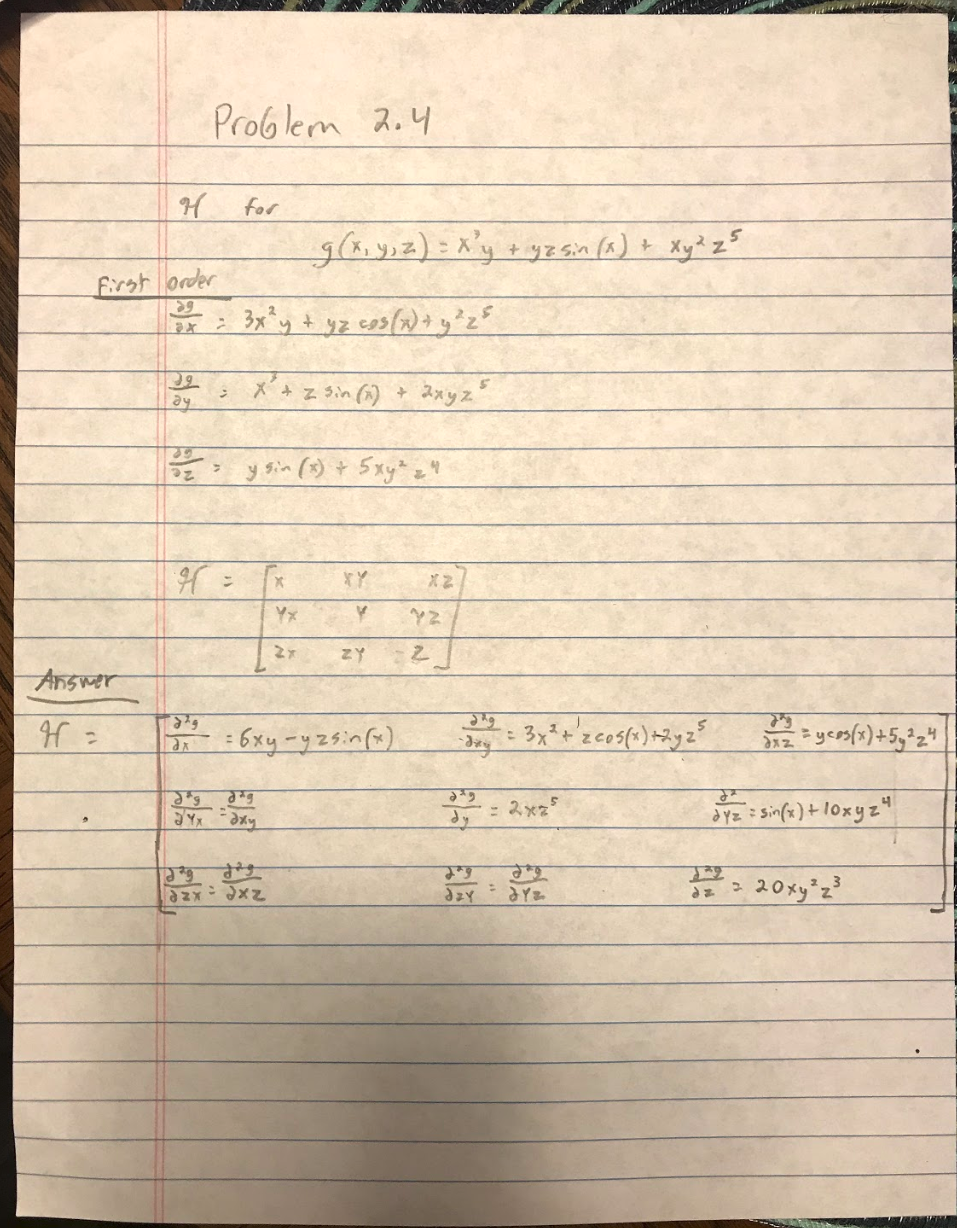 Problem 2.4
H for
g(x,y,z) = x³y + yz sin(x) + xy²z⁵
First order
∂g/∂x = 3x²y + yz cos(x) + y²z⁵
∂g/∂y = x³ + z sin(x) + 2xyz⁵
∂g/∂z = y sin(x) + 5xy²z⁴
H = [x xy xz
yx y yz
zx zy z]
Answer
H = [∂²g/∂x = 6xy - yz sin(x) ∂²g/∂xy = 3x² + z cos(x) + 2yz⁵ ∂²g/∂xz = y cos(x) + 5y²z⁴
∂²g/∂yx = ∂²g/∂xy ∂²g/∂y = 2xz⁵ ∂²/∂yz = sin(x) + 10xyz⁴
∂²g/∂zx = ∂²g/∂xz ∂²g/∂zy = ∂²g/∂yz ∂²g/∂z = 20xy²z³]